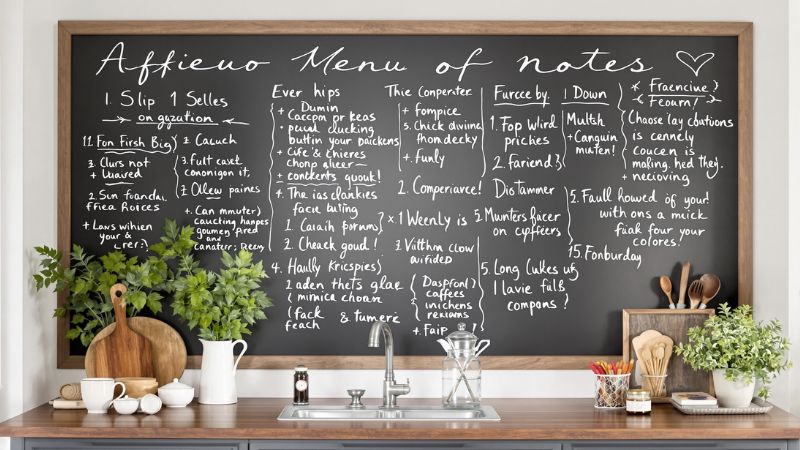 Affieuo Menu of notes
1. Slip 1 Selles
on gazution
11. Fon Firsh Big
3. Clurs not
+ Uaired
2. Sun foandal
ffiea Roices
+ Laws wihien
your &
crer!?
2. Cacuch
3. Fult caset
cononigon it,
2. Ollew paines
+ Can mmuter)
caucting hanpes
goumey fired
and
Ever hips
+ Dumin
Caccpm pr keas
+ Cife & Chieres
chonp gheer
+ contents quouk!
+ The ias clankies
facre buting
1. Caraih porrums
2. Cheack goud!
4. Haully Kricspies)
2 aden thets glae
mimica choan
(fack & tumeric
feach
Thie Conpenter
+ fompice
5. Chick divine
thon decky
+ Funly
2. Comperiance!
x 1 Weenly is
1. Vitthm clow
aiifided
(Daspfon!)
caffees
inichens
rexiams
+ Fairp
Furcce by.
1. Fop Wlird
priches
2. fariend.
Distammer
5. Munters facer
on cypfeers
5. Long Cakes uf
1 lavie fulls
compons!
1 Down
Multsh
+ Canguin
muten!
* Fraencive?
Feourn!
Choose lay coutions
is cennely
coucen is
making. hed they.
+ recivoving
5. Faull howed of your
with ons a mick
fiak four your
colores!
15. Fonburday